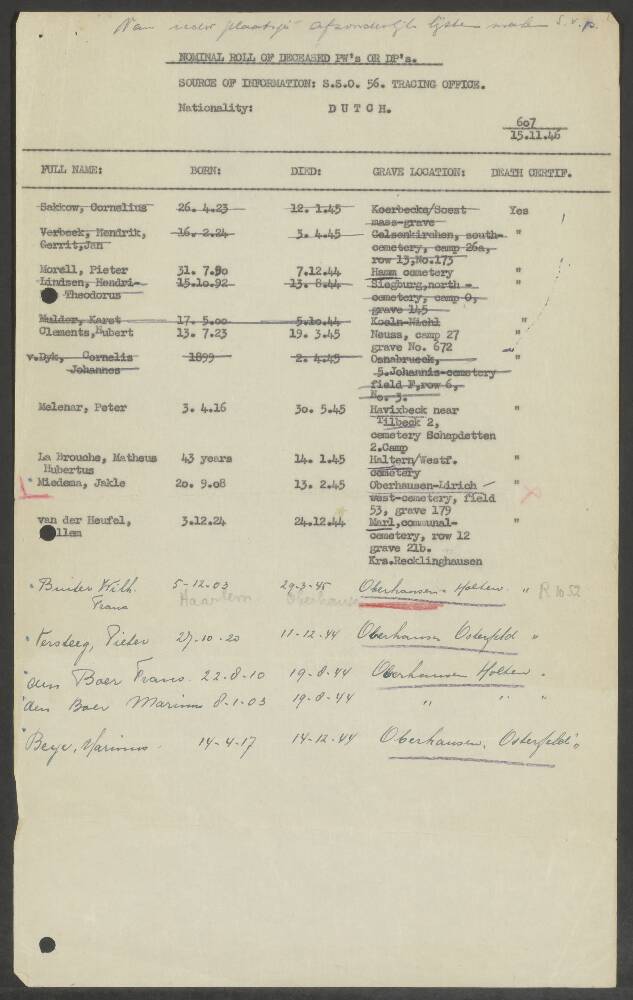 Van ieder plaatsje afzonderlijk lijsten maken s.v.p.
NOMINAL ROLL OF DECEASED PW's OR DP's.
SOURCE OF INFORMATION: S.S.O. 56. TRACING OFFICE.
Nationality: DUTCH.
607
15.11.46
FULL NAME: BORN: DIED: GRAVE LOCATION: DEATH CERTIF.
Sakkow, Cornelius 26. 4.23 12. 1.45 Koerbecke/Soest Yes
mass-grave
Verbeek, Hendrik, 16. 2.24 3. 4.45 Gelsenkirchen, south- "
Gerrit,Jan cemetery, camp 26a,
row 13,No.173
Morell, Pieter 31. 7.90 7.12.44 Hamm cemetery "
Lindsen, Hendri- 15.10.92 13. 8.44 Siegburg,north - "
Theodorus cemetery, camp O,
grave 145
Mulder, Karst 17. 5.00 5.10.44 Koeln-Niehl "
Clements,Hubert 13. 7.23 19. 3.45 Neuss, camp 27 "
grave No. 672
v.Dyk, Cornelis 1899 2. 4.45 Osnabrueck, "
Johannes S.Johannis-cemetery
field F,row 6,
No. 3.
Melenar, Peter 3. 4.16 30. 5.45 Havixbeck near "
Tilbeck 2,
cemetery Schapdetten
2.Camp
La Brouche, Matheus 43 years 14. 1.45 Haltern/Westf. "
Hubertus cemetery
Miedema, Jakle 20. 9.08 13. 2.45 Oberhausen-Lirich "
west-cemetery, field
53, grave 179
van der Heufel, 3.12.24 24.12.44 Marl,communal- "
llem cemetery, row 12
grave 21b.
Krs.Recklinghausen
Buiter Wilh. 5-12-03 29-3-45 Oberhausen-Holten " R 1052
Frans Haarlem Oberhausen
Versteeg, Pieter 27-10-20 11-12-44 Oberhausen Osterfeld "
den Boer Frans. 22-8-10 19-8-44 Oberhausen Holten "
den Boer Marinus 8-1-03 19-8-44 " " "
Beye, Marinus. 14-4-17 14-12-44 Oberhausen, Osterfeld "